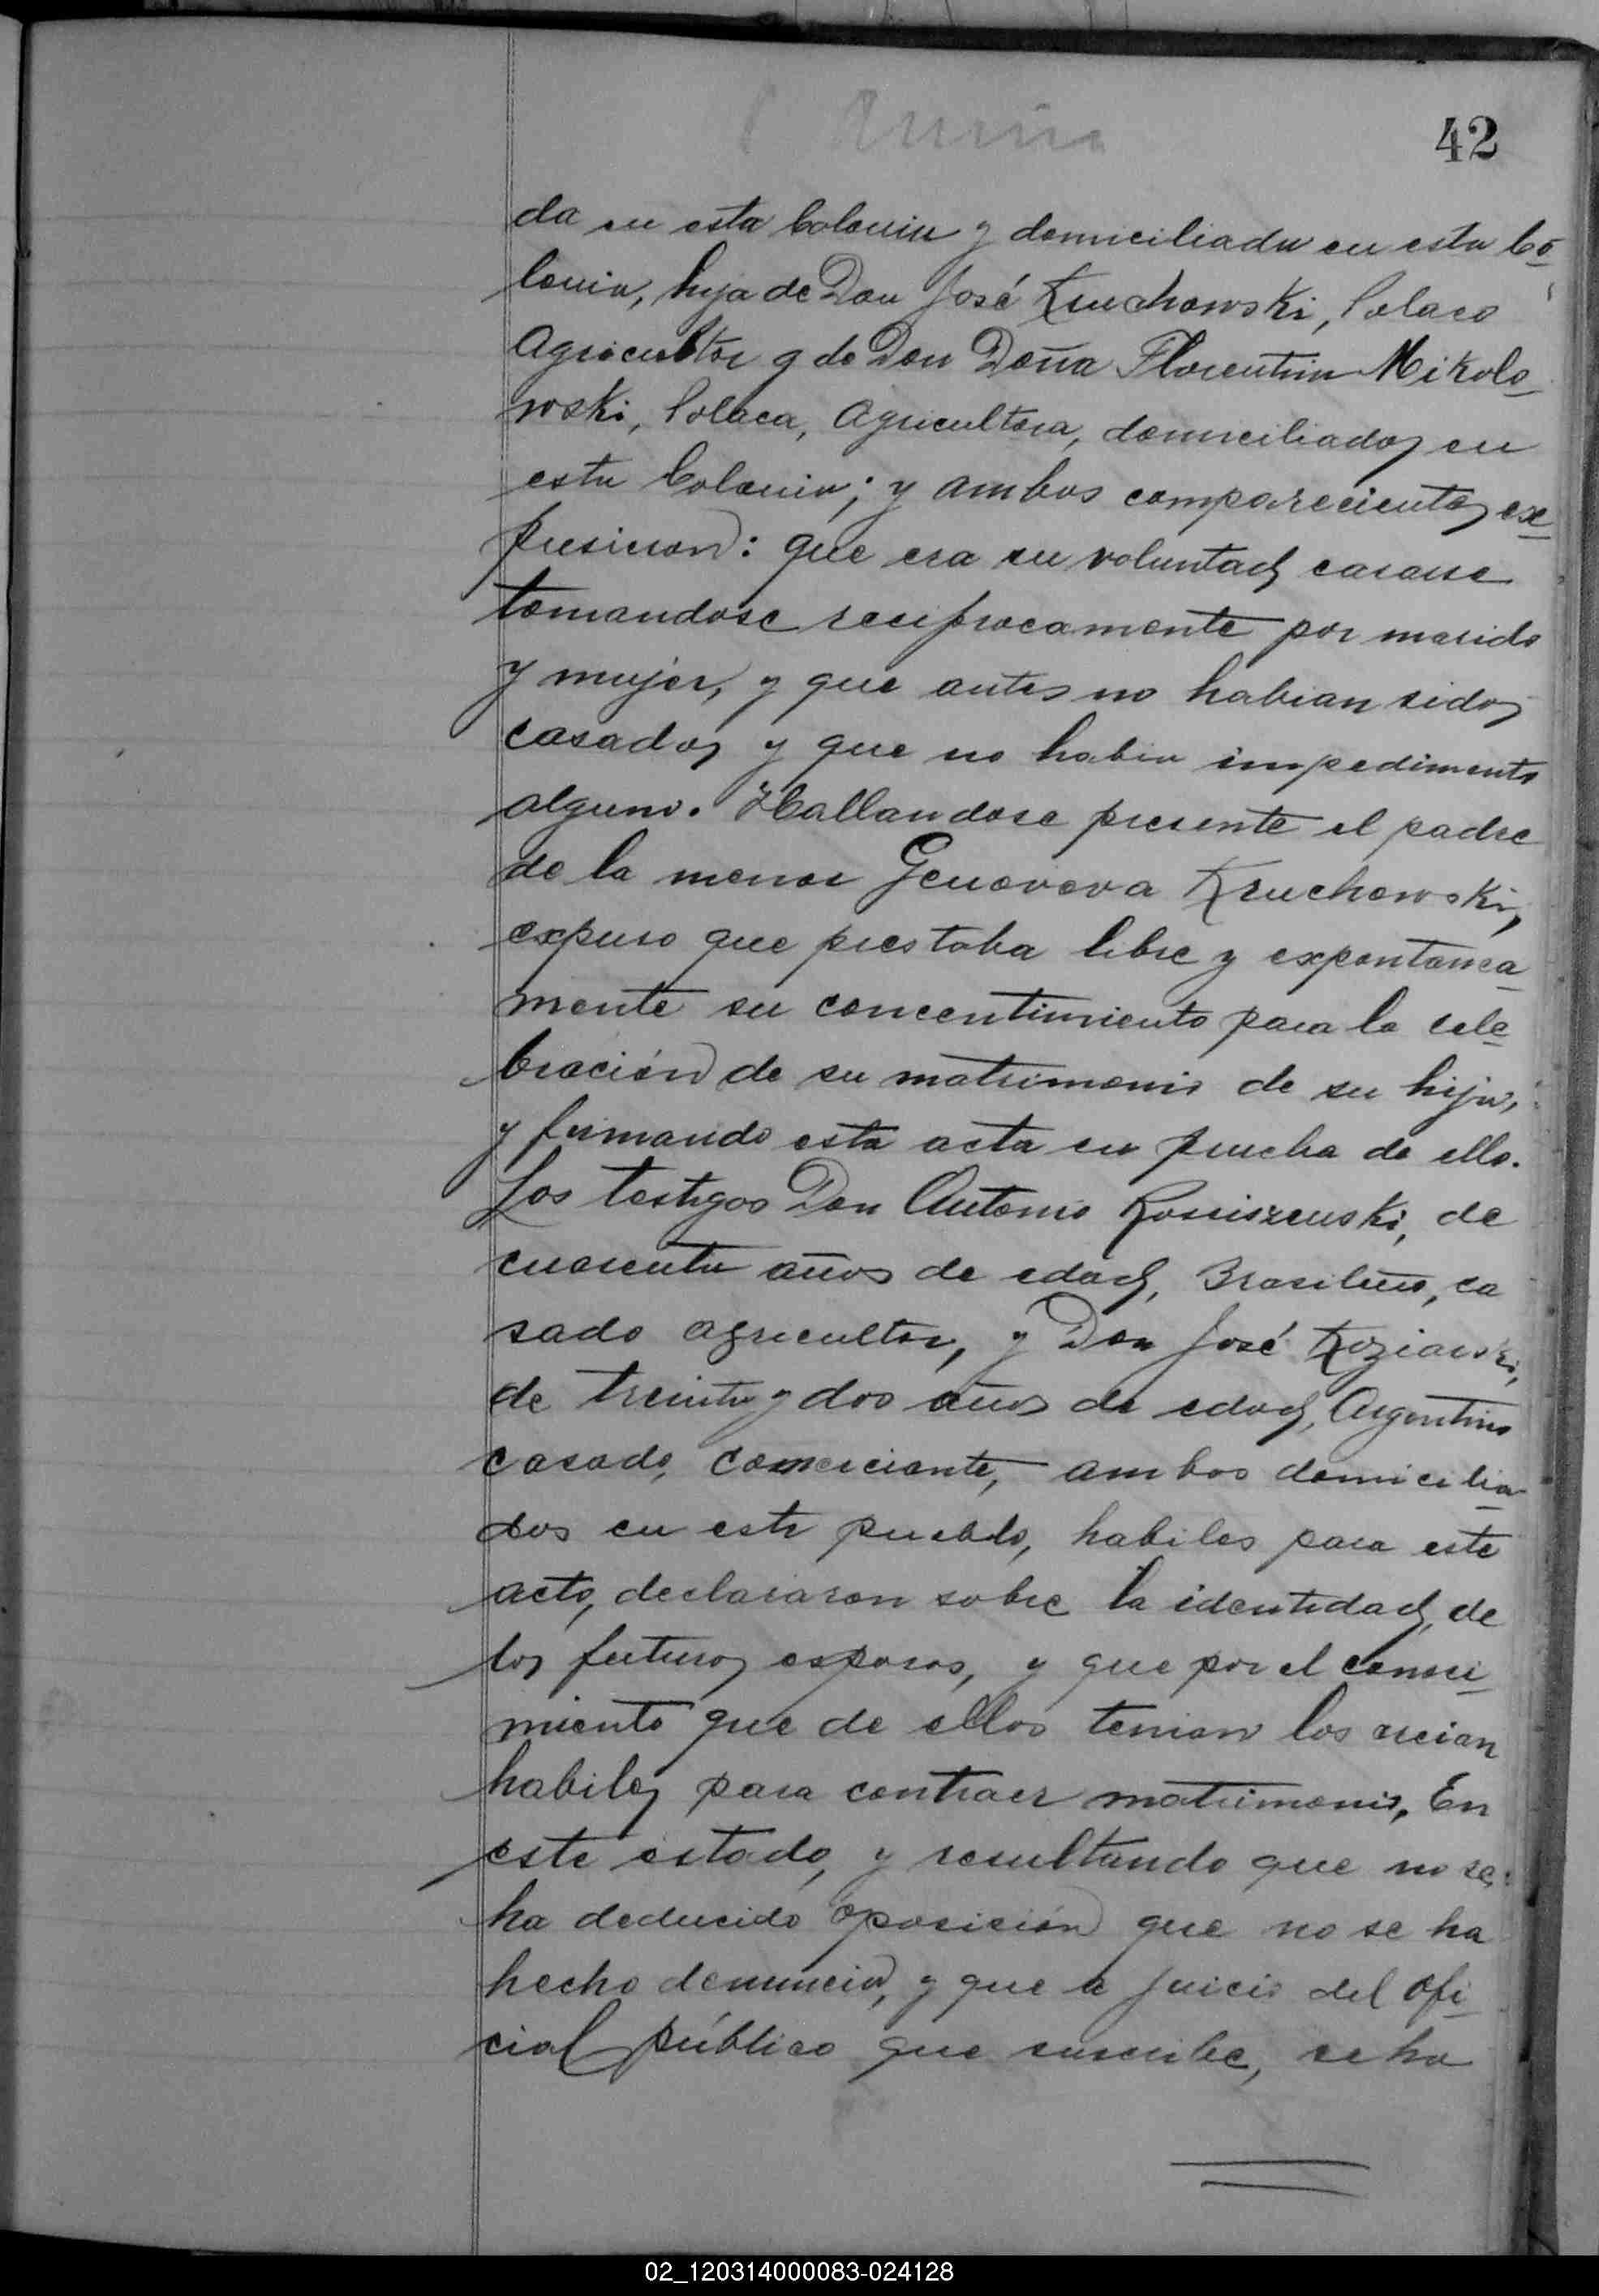 42
da en esta Colonia y domiciliada en esta Co
lonia, hija de Don José Kruchowski, Polaco
Agricultor y de Don Doña Florentina Mikolo
wski, Polaca, Agricultora, domiciliados en
esta Colonia; y ambos comparecientes ex
presieron: que era su voluntad casarse
tomandose reciprocamente por marido
y mujer, y que antes no habian sidos
casados y que no habia impedimento
alguno. Hallandose presente el padre
de la menor Genoveva Kruchowski,
expuso que prestaba libre y expontanea
mente su concentimiento para la cele
bración de su matrimonio de su hija,
y firmando esta acta en prueba de ello.
Los testigos Don Antonio Kosciszeuski, de
cuarenta años de edad, Brasilero, ca
sado agricultor, y Don José Koziarski,
de treinta y dos años de edad, Argentino
casado, comerciante, ambos domicilia
dos en este pueblo, habiles para este
acto, declararon sobre la identidad, de
los futuros esposos, y que por el conoci
miento que de ellos tenian los creian
habiles para contraer matrimonio, En
este estado, y resultando que no se
ha deducido oposición que no se ha
hecho denuncia, y que a juicio del ofi
cial público que suscribe, se ha
02_120314000083-024128